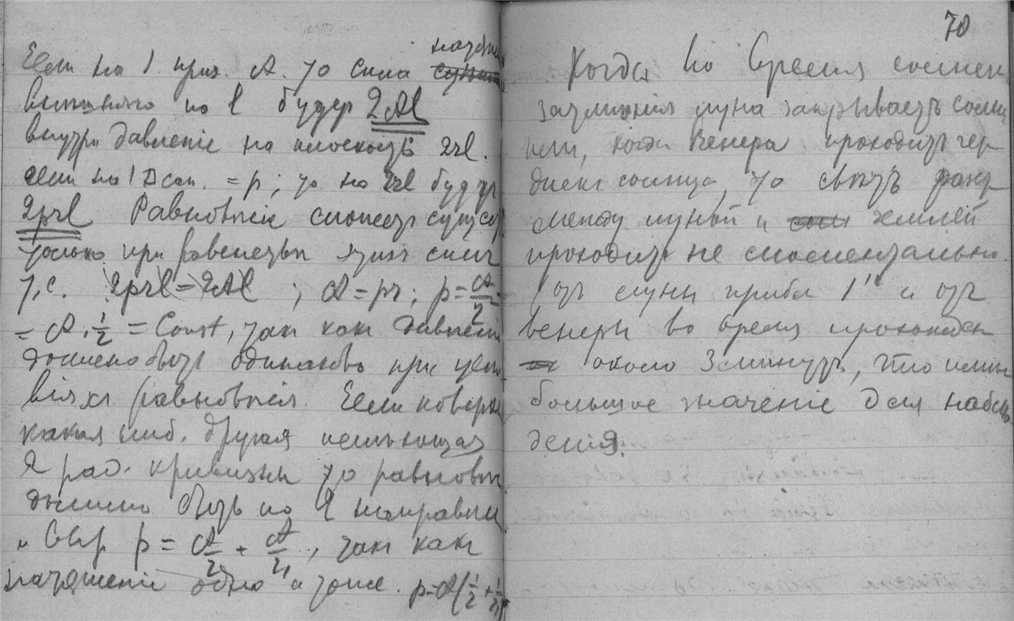 Если на 1 приз. A. то сила натяж
внѣшняго на l будет 2Al
внутри давленiе на плоскость 2rl.
если на 1 □ сан. = p; то на 2rl будет
2prl Равновѣсiе может сущес
только при равенствѣ этих сил
т.е. 2prl = 2Al ; A = pr ; p = A/r =
= A. 1/r = Const, так как давленi
должно быть одинаково при усло
вiях равновѣсiя. Если поверх
какая ниб. другая имѣющая
2 рад. кривизны то равновѣс
должно быть по 2 направл
и выр p = A/r + A/r₁, так как
натяженiе одно и тоже. p=A(1/r + 1/r₁)
70
Когда во время солнеч
затменiя луна закрывает солн
или, когда Венера проходит чер
диск солнца, то свѣт
между луной и землей
проходит не моментально.
От луны прибл 1" и от
венеры во время прохожден
около 3 минут, что имѣет
большое значенiе для наблю
денiя.